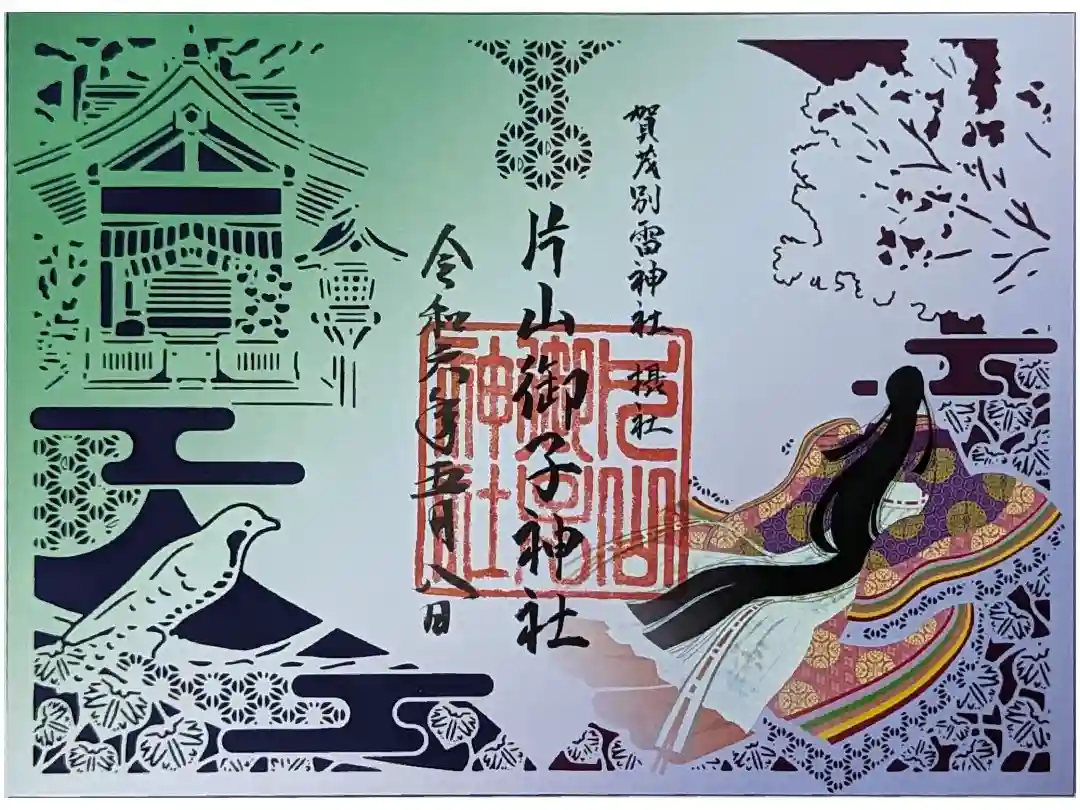 賀茂別雷神社 摂社
片山御子神社
令和六年五月八日
片山御子神社